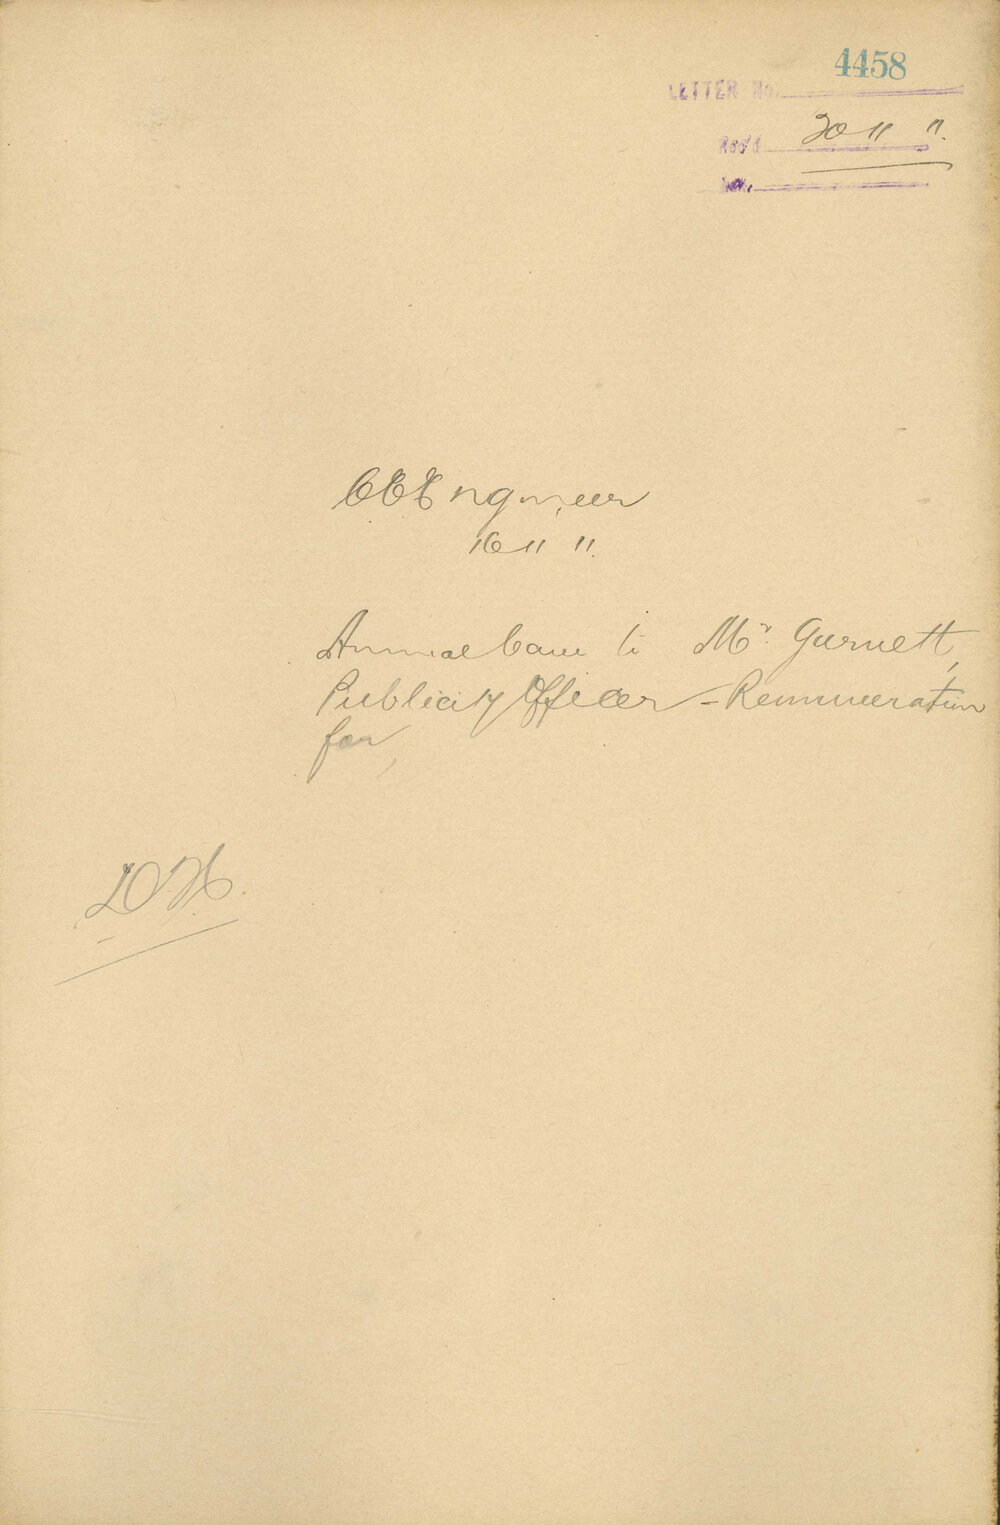 4458
LETTER No.
Rec'd 30 11 11.
Ack.
C E Engineer
16 11 11.
to Mr Gurnett,
Publicity Officer - Remuneration
for,